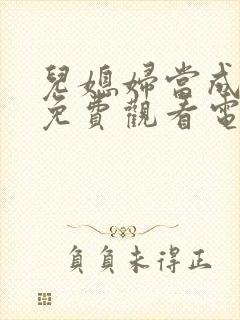 兒媳婦當成
免費觀看電
負負未得正